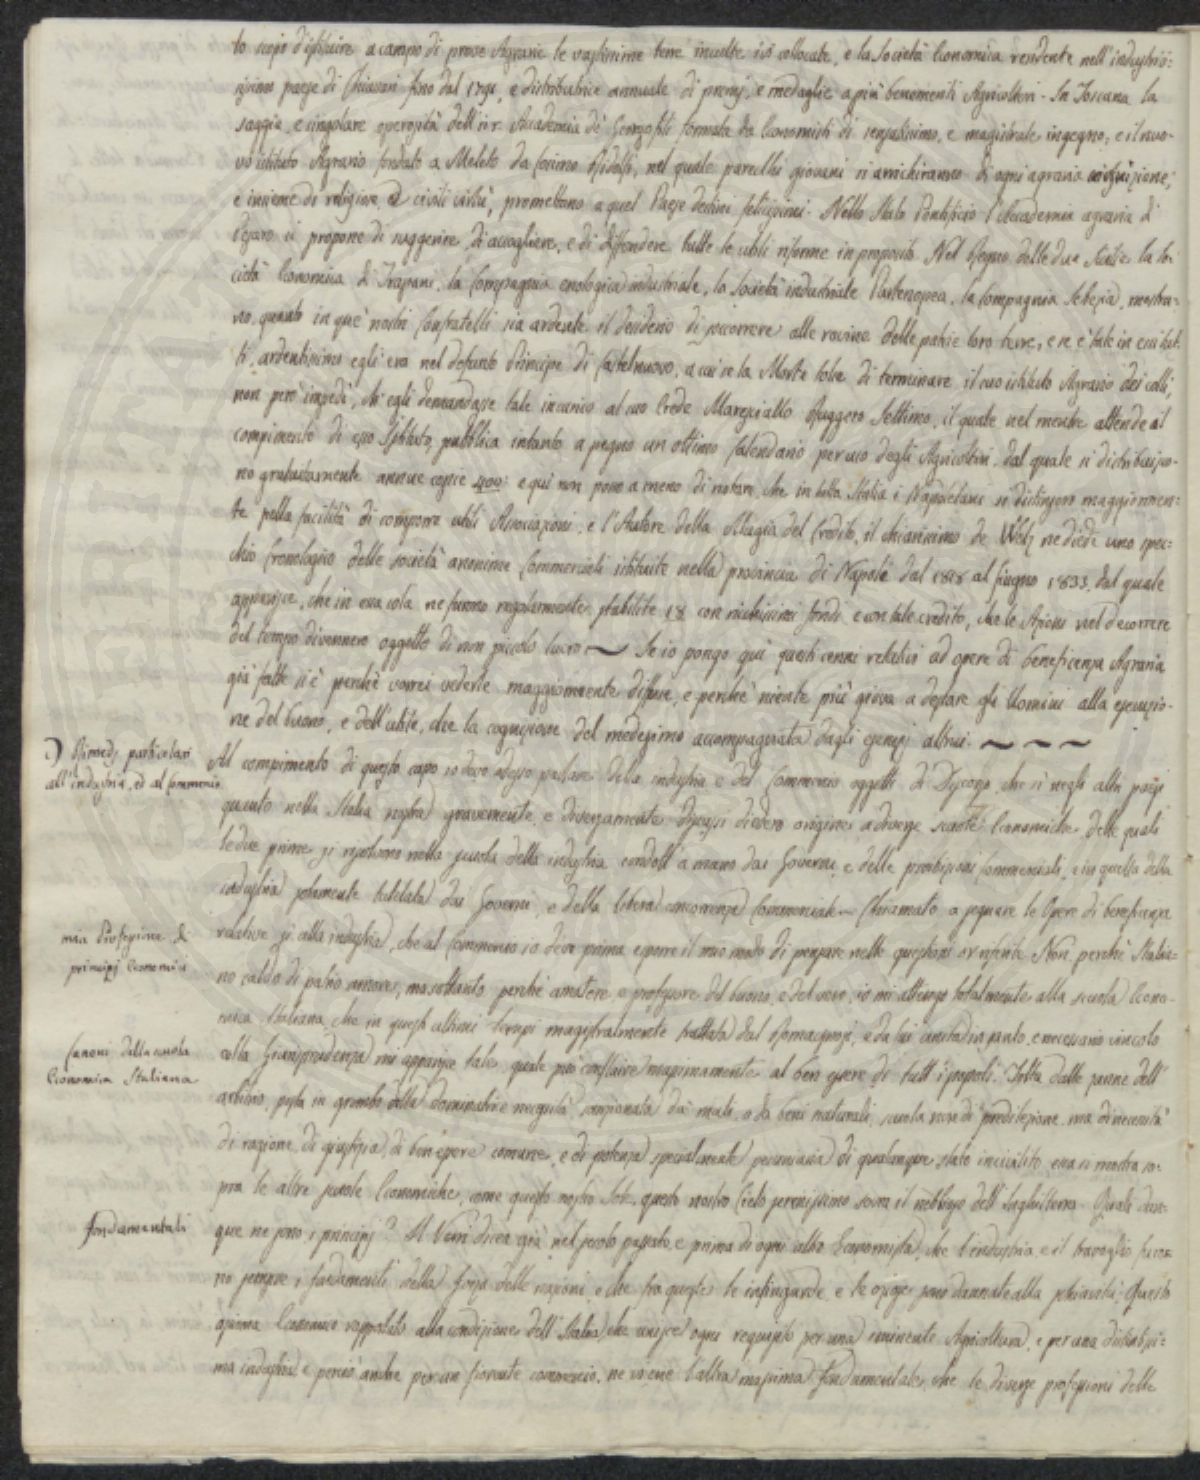 to scopo d'istituire a campo di prove Agrarie le vastissime terre incolte ivi collocate, e la Società Economica residente nell'industrio:
sissimo paese di Chiavari fino dal 1791, e distributrice annuale di premj, e medaglie a più benemeriti Agricoltori. In Toscana la
saggia, e singolare operosità dell' Accademia de' Georgofili formata da Economisti di sensatissimo, e magistrale ingegno, e il nuo-
vo istituto Agrario fondato a Meleto da Cosimo Ridolfi, nel quale parecchi giovani si arricchiranno di ogni agraria istruzione,
e insieme di religiose, e civili virtù, promettono a quel Paese destini felicissimi. Nello Stato Pontificio l'Accademia agraria di
Pesaro si propone di suggerire, di accogliere, e di diffondere tutte le utili riforme in proposito. Nel Regno delle due Sicilie la So:
cietà Economica di Trapani, la Compagnia enologica industriale, la Società industriale Partenopea, la Compagnia Sebezia, mostra-
no, quanto in que' nostri Confratelli sia ardente il desiderio di soccorrere alle rovine delle patrie loro terre, e se è tale in essi tut-
ti, ardentissimo egli era nel defunto Principe di Castelnuovo, a cui se la Morte tolse di terminare il suo istituto Agrario dei colli,
non però impedì, ch'egli demandasse tale incarico al suo Erede Maresciallo Ruggero Settimo, il quale nel mentre attende al
compimento di esso Istituto, pubblica intanto a pegno un ottimo Calendario per uso degli Agricoltori, dal quale si distribuisco-
no gratuitamente annue copie 400: e qui non posso a meno di notare, che in tutta Italia i Napoletani si distinguono maggiormen:
te nella facilità di comporre utili Associazioni, e l'Autore della Magia del Credito, il chiarissimo de Welz ne diede uno spec:
chio Cronologico delle società anonime Commerciali istituite nella provincia di Napoli dal 1818 al Giugno 1833. dal quale
apparisce, che in essa sola ne furono regolarmente stabilite 18 con ricchissimi fondi e con tale credito, che le Azioni nel decorrere
del tempo divennero oggetto di non piccolo lucro. Se io pongo qui questi cenni relativi ad opere di beneficenza Agraria
già fatte si è perchè vorrei vederle maggiormente diffuse, e perchè niente più giova a destare gli Uomini alla esecuzio-
ne del buono, e dell'utile, che la cognizione del medesimo accompagnata dagli esempj altrui.
Rimedj particolari
all'industria, ed al Commercio
Al compimento di questo capo io devo adesso parlare della industria e del Commercio oggetti di Discorso, che sì negli altri paesi
quanto nella Italia nostra gravemente, e diversamente discussi diedero origine a diverse scuole Economiche, delle quali
le due prime si risolvono nella scuola della industria condotta a mano dai Governi, e delle proibizioni Commerciali, e in quella della
industria solamente tutelata dai Governi, e della libera concorrenza Commerciale. Chiamato a segnare le Opere di beneficenza
mia Professione di
principj Economici
relative sì alla industria, che al Commercio io devo prima esporre il mio modo di pensare nelle questioni Non perchè Italia:
no caldo di patrio amore, ma soltanto perchè amatore, e professore del buono, e del vero, io mi attengo totalmente alla scuola Econo-
mica Italiana, che in questi ultimi tempi magistralmente trattata dal Romagnosi, e da lui unita in santo, e necessario vincolo
Canoni della scuola
Economica Italiana
colla Giurisprudenza mi apparisce tale, quale può conferire massimamente al ben essere di tutt'i popoli. Tolta dalle panne dell'
arbitrio, posta in grembo della dominatrice necessità sanzionata da mali, o da beni naturali, scuola non di predilezione, ma di necessità
di ragione, di giustizia, di ben essere comune, e di potenza specialmente pecuniaria di qualunque stato incivilito, essa si mostra so:
pra le altre scuole Economiche, come questo nostro Sole, questo nostro Cielo serenissimo sovra il nebbioso dell'Inghilterra. Quali dun:
fondamentali
que ne sono i principj? Il Verri dicea già nel secolo passato, e prima di ogni altro Economista, che l'industria, e il travaglio furo:
no sempre i fondamenti della forza delle nazioni, e che fra queste le infingarde, e le oziose sono dannate alla schiavitù: Questo
assioma Economico rapportato alla condizione dell'Italia, che unisce ogni requisito per una eminente Agricoltura, e per una distintissi:
ma industria, e perciò anche per un fiorente commercio, ne viene l'altra massima fondamentale, che le diverse professioni delle